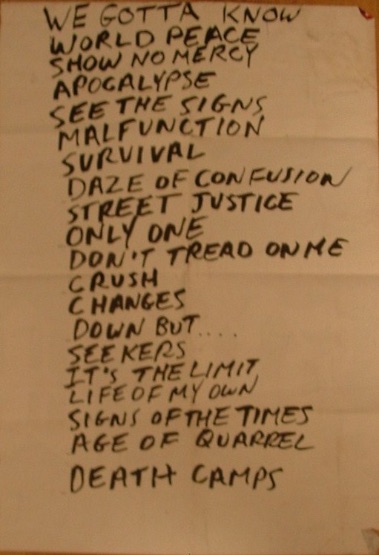 WE GOTTA KNOW
WORLD PEACE
SHOW NO MERCY
APOCALYPSE
SEE THE SIGNS
MALFUNCTION
SURVIVAL
DAZE OF CONFUSION
STREET JUSTICE
ONLY ONE
DON'T TREAD ON ME
CRUSH
CHANGES
DOWN BUT....
SEEKERS
IT'S THE LIMIT
LIFE OF MY OWN
SIGNS OF THE TIMES
AGE OF QUARREL
DEATH CAMPS